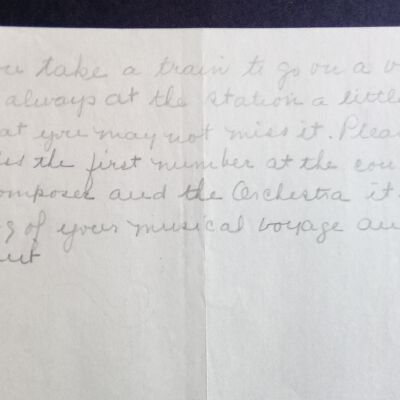 ou take a train to go on a v
always at the station a little
at you may not miss it. Plea
iss the first number at the con
omposer and the Orchestra it
g of your musical voyage an
ut